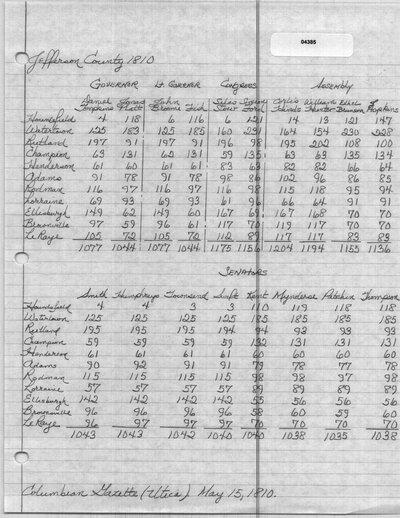 04385
Jefferson County 1810
Governor Lt. Governor Congress Assembly
Daniel Tompkins Jonas Platt John Broome Fish Silas Stow Ford Corlis Hinds William Hunter Ethel Bronson Hopkins
Hounsfield 4 118 6 116 6 121 14 13 121 147
Watertown 125 183 125 185 160 231 164 154 230 228
Rutland 197 91 197 91 196 98 195 202 108 100
Champion 63 131 62 131 59 135 63 63 135 134
Henderson 61 60 61 61 83 63 82 82 66 64
Adams 91 78 91 78 98 86 102 96 86 85
Rodman 116 97 116 97 116 98 115 118 95 94
Lorraine 69 93 69 93 61 96 66 64 91 91
Ellisburgh 149 62 149 60 167 69 167 168 70 70
Brownville 97 59 96 61 117 70 119 117 70 70
LeRaye 105 72 105 72 112 89 117 117 83 83
1077 1044 1077 1044 1175 1156 1204 1194 1155 1136
Senators
Smith Humphreys Townsend Taft Kent Mynderse Patchin Thompson
Hounsfield 4 4 3 3 110 119 118 118
Watertown 125 125 125 125 185 185 185 185
Rutland 195 195 195 194 94 93 93 93
Champion 59 59 59 59 132 131 131 131
Henderson 61 61 61 61 60 60 60 60
Adams 90 92 91 91 79 78 77 78
Rodman 115 115 115 115 98 98 97 98
Lorraine 57 57 57 57 89 89 89 89
Ellisburgh 142 142 142 142 55 56 56 56
Brownville 96 96 96 96 58 60 59 60
LeRaye 96 97 97 97 70 70 70 70
1043 1043 1042 1040 1040 1038 1035 1038
Columbian Gazette (Utica) May 15, 1810.